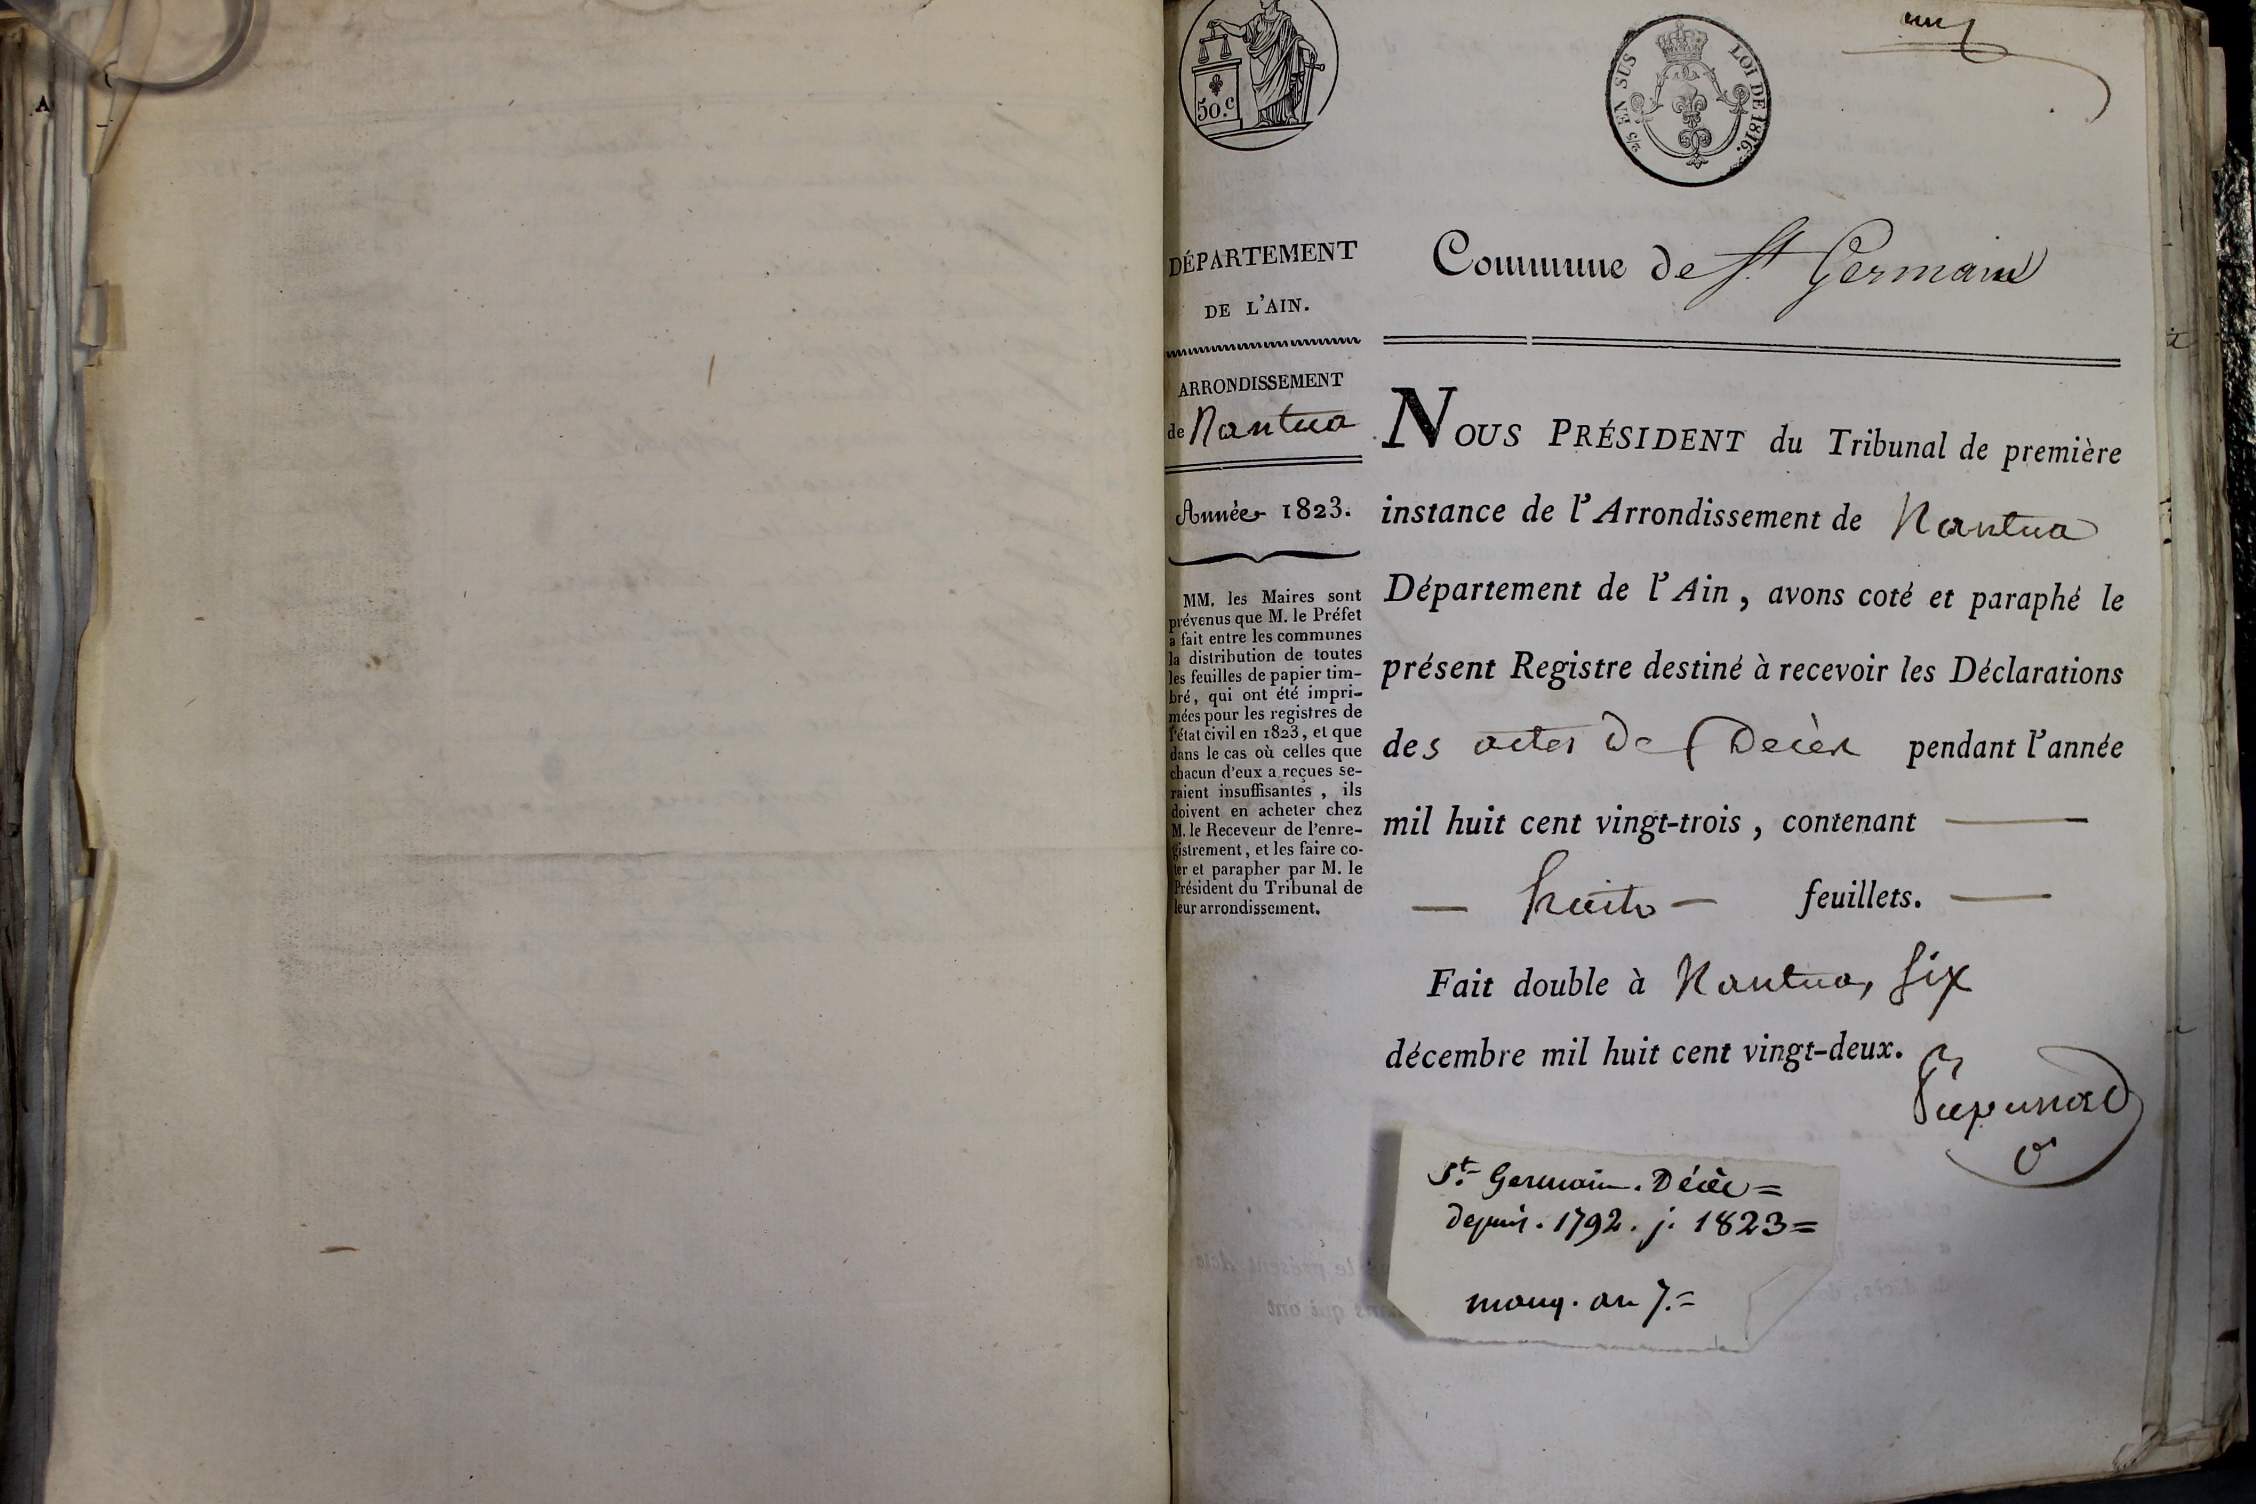 A
50.c
2/5 EN SUS LOI DE 1816.
un
DÉPARTEMENT
DE L'AIN.
ARRONDISSEMENT
de Nantua
Année 1823.
MM. les Maires sont
prévenus que M. le Préfet
a fait entre les communes
la distribution de toutes
les feuilles de papier tim-
bré, qui ont été impri-
mées pour les registres de
l'état civil en 1823, et que
dans le cas où celles que
chacun d'eux a reçues se-
raient insuffisantes, ils
doivent en acheter chez
M. le Receveur de l'enre-
gistrement, et les faire co-
ter et parapher par M. le
Président du Tribunal de
leur arrondissement.
Commune de St Germain
NOUS PRÉSIDENT du Tribunal de première
instance de l'Arrondissement de Nantua
Département de l'Ain, avons coté et paraphé le
présent Registre destiné à recevoir les Déclarations
des actes de Décès pendant l'année
mil huit cent vingt-trois, contenant
— huit — feuillets. —
Fait double à Nantua, six
décembre mil huit cent vingt-deux.
St. Germain. Décès =
depuis. 1792. j. 1823 =
manq. an 7. =